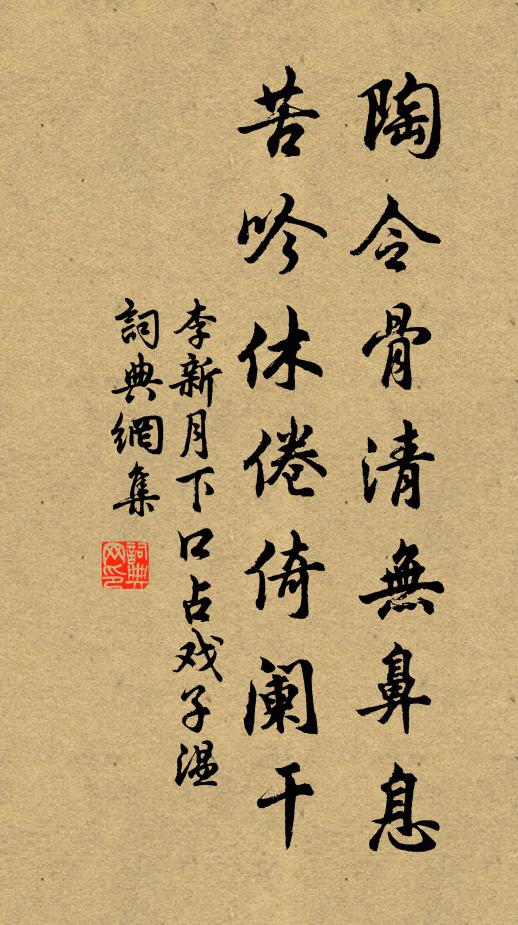 陶令骨清無鼻息
苦吟休倦倚阑干
李新月下口占戏子温
詞典網集
詞典网印